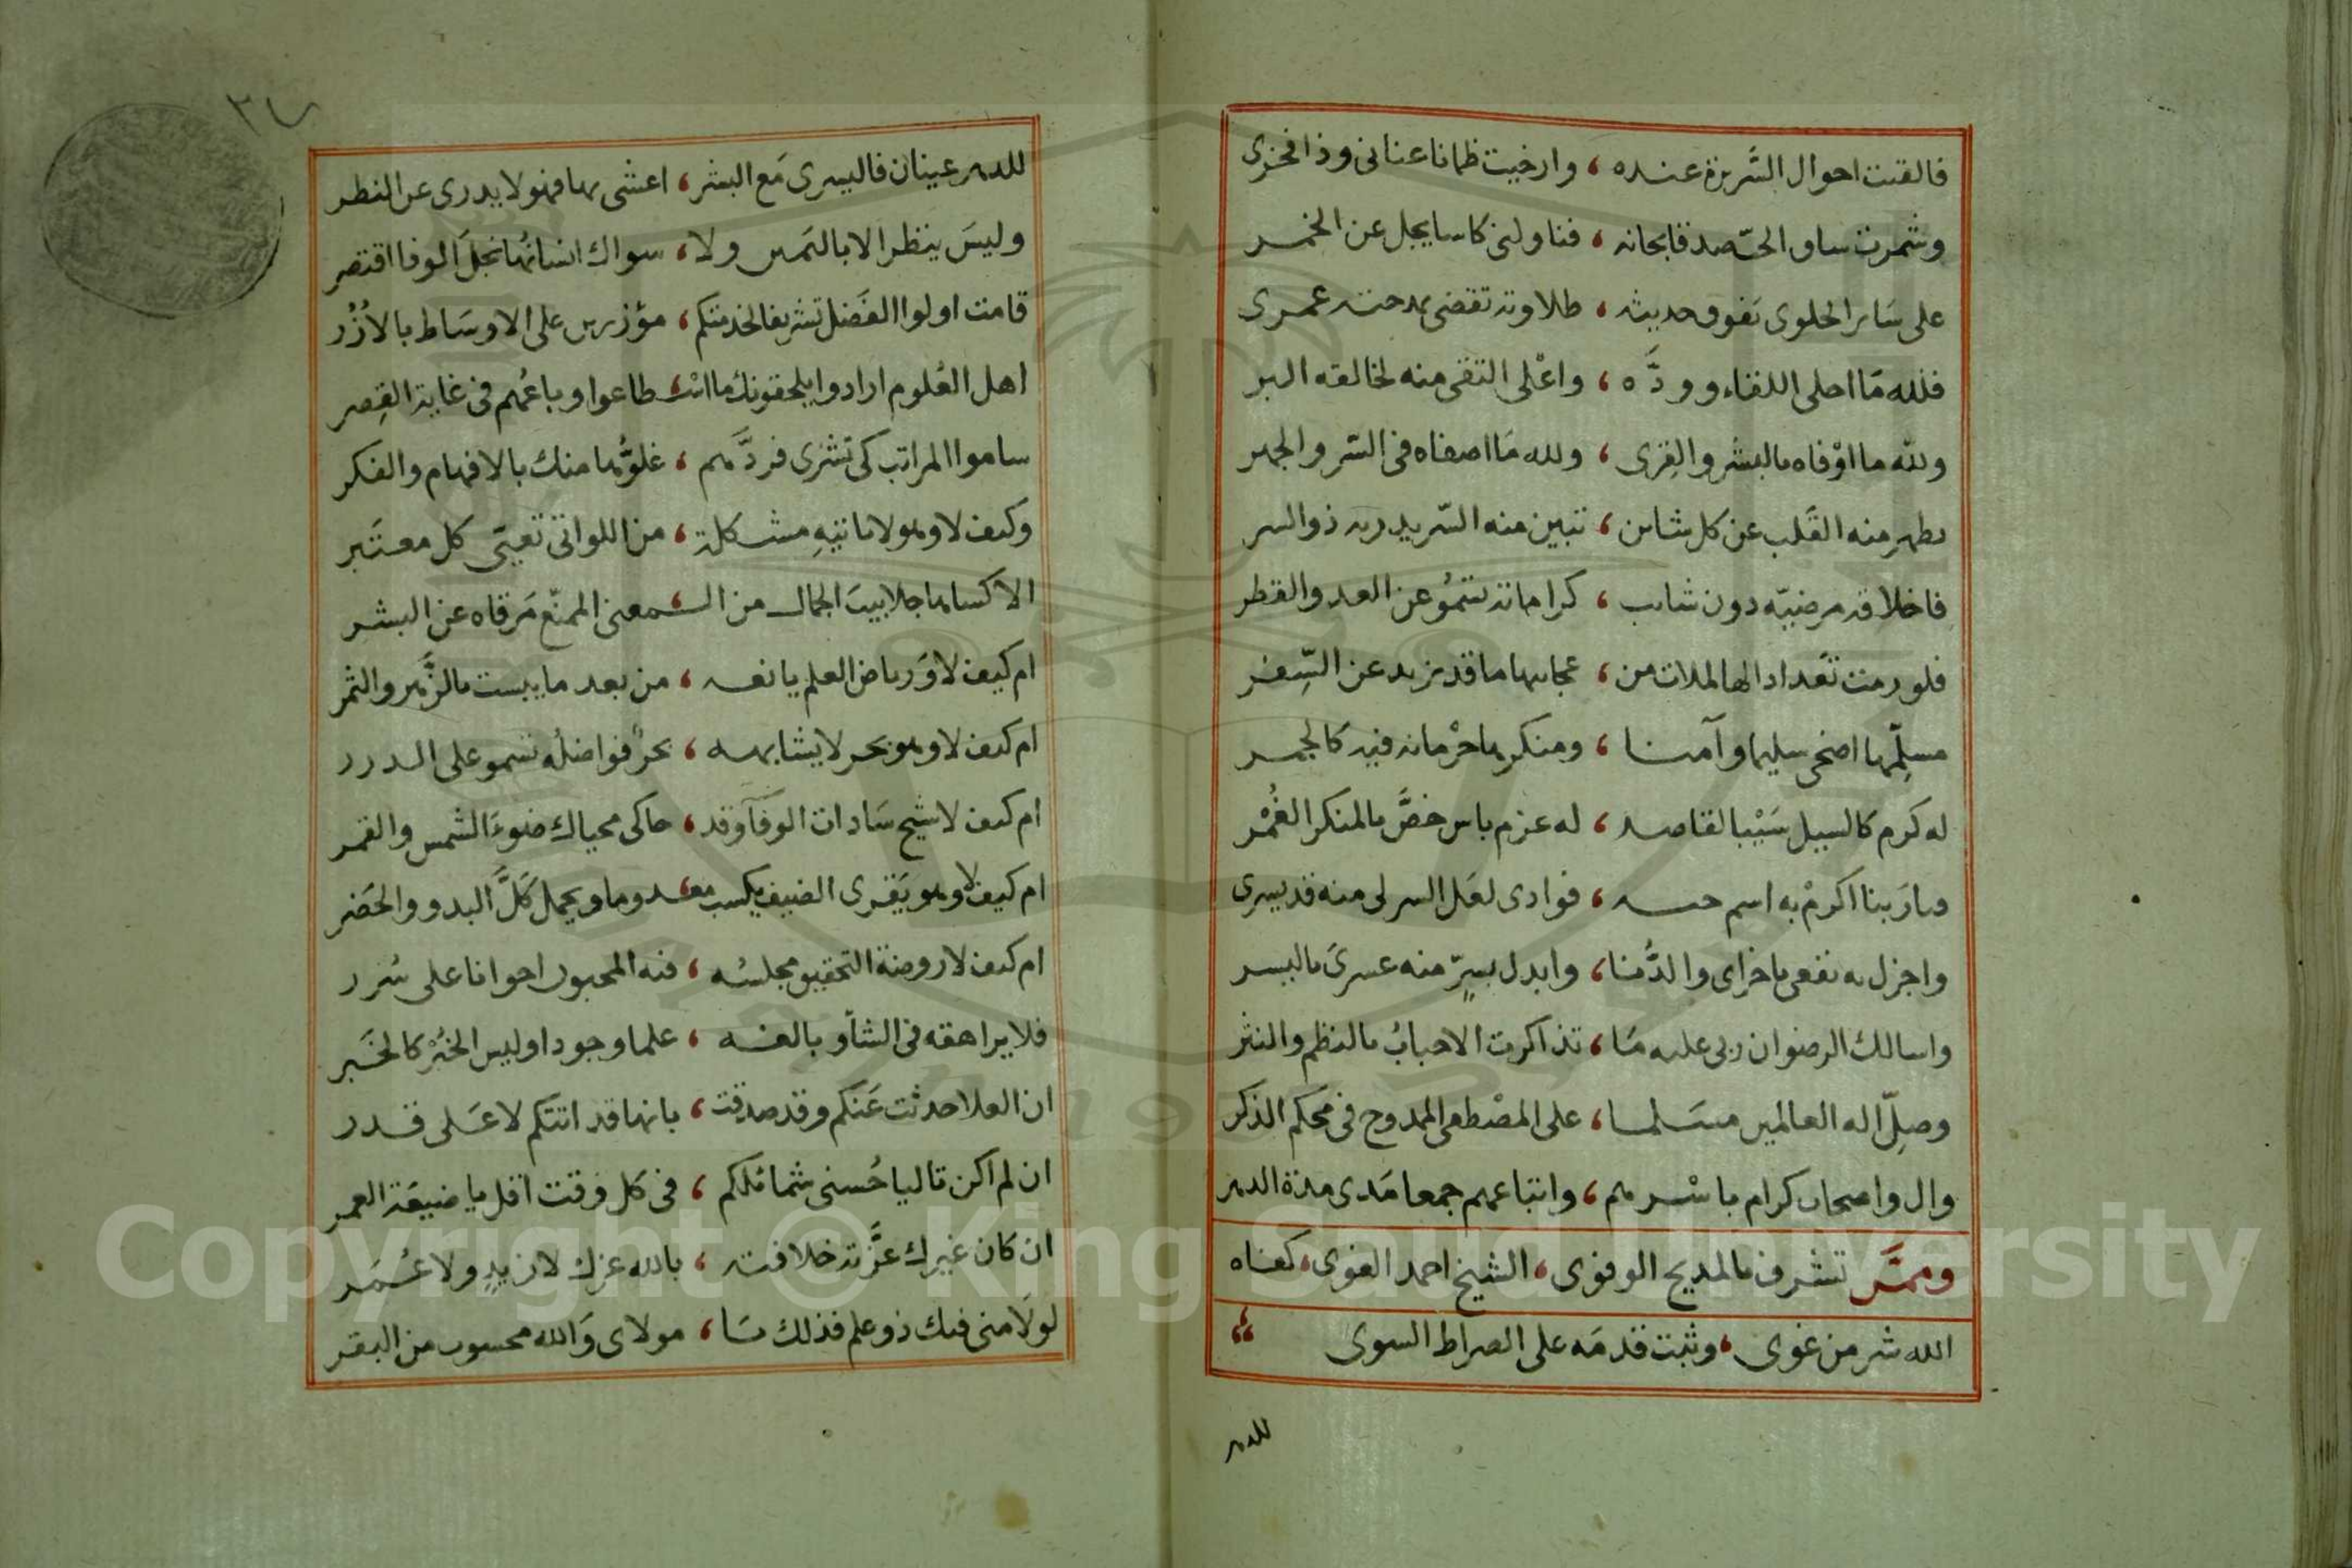 فالقيت احوال السريرة عنده ، وارخيت ظمانا عناني وذا فخرى
وشمرت ساق الحب صدقا بحانه ، فناولني كاسا يجل عن الخمر
على سَاير الحلوى تفوق حديثه ، طلاوته تقضى بمدحته عمرى
فلله مَا احلى اللقاء وودَّه ، واعْلى التقى منه لخالقه البر
ولله ما اوْفاه بالبشر والقِرى ، ولله مَا اصفاه في السّر والجهر
يطهر منه القَلب عن كل شاين ، تبين منه السّر يدريه ذوالسر
فاخلاقه مرضيّه دون شايب ، كراماته تسمُو عن العد والقطر
فلو رمت تَعداد الها لملات من ، عجايبها ما قد يزيد عن السِّفر
مسلّمها اضحى سليما وآمنا ، ومنكرها حرْمانه فيه كالجمر
له كرم كالسيل سَيْبا لقاصد ، له عزم باس خصَّ بالمنكر الغُمْر
فيا رَبنا اكرمْ به اسم حبه ، فوادى لعَل السر لى منه قد يسرى
واجزل به نفعى باخراى والدُّنا ، وابدل بسرٍّ منه عسرىَ باليسر
واسالك الرضوان ربى عليه مَا ، تذاكرت الاحبابُ بالنظم والنثر
وصلِّ اله العالمين مسَلما ، على المصْطفى الممدوح في محكم الذكر
وال واصحاب كرام باسْرهم ، واتباعهم جمعا مَدى مدة الدهر
وممَّن تشرف بالمديح الوفوى ، الشيخ احمد الغوى ، كفاه
الله شر من غوى ، وثبت قدمَه على الصراط السوى
للدهر
٣٤
للدهر عينان فاليسرى مَع البشر ، اعشى بها فهو لا يدرى عن النظر
وليسَ ينظر الا باليَمين ولا ، سواك انسانُها نجلَ الوفا اقتصر
قامت اولوا الفَضل تشريفا لخدمتكم ، مؤزرين على الاوسَاط بالاُزُر
اهل العُلوم ارادوا يلحقونك ما اسْتطاعوا وباعُهم في غاية القِصر
ساموا المراتب كى تشرى فردَّهم ، غلوُّها منك بالافهام والفكر
وكيف لا وهو لاباتيهِ مشكلة ، من اللواتى تَعيّى كل معتَبر
الا كساها جلابيبَ الجمال من المعنى الممنّع مَرقاه عن البشر
ام كيف لا وَرياض العلم يانعه ، من بعد ما يبست بالزَّهر والثمر
ام كيف لا وهو بحر لا يشابهه ، بحرٌ فواضلُه تسمو على الدرر
ام كيف لا شيخ سَادات الوفآ وقد ، حاكى محياك ضوءَ الشمس والقمر
ام كيف لا وهو يَقرى الضيف يكسب معدوما ويحمل كَلَّ البدو والحَضر
ام كيف لا روضة التحقيق مجلسُه ، فيه المحبون اخوانا على سُرر
فلا يراهقه في الشأو بالغه ، علما وجودا وليس الخُبْر كالخَبر
ان العلا حدثت عَنكم وقد صدقت ، بانها قد اتتكم لا عَلى قدر
ان لم اكن تاليا حُسنى شمائلكم ، في كل فرقت اقل يا ضيعَة العمر
ان كان غيرك عزَّته خلافته ، بالله عزك لا زيدٍ ولا عُمَر
لولَامنى فيك ذو علم فذلك يَا ، مولاى وَالله محسوب من البقر